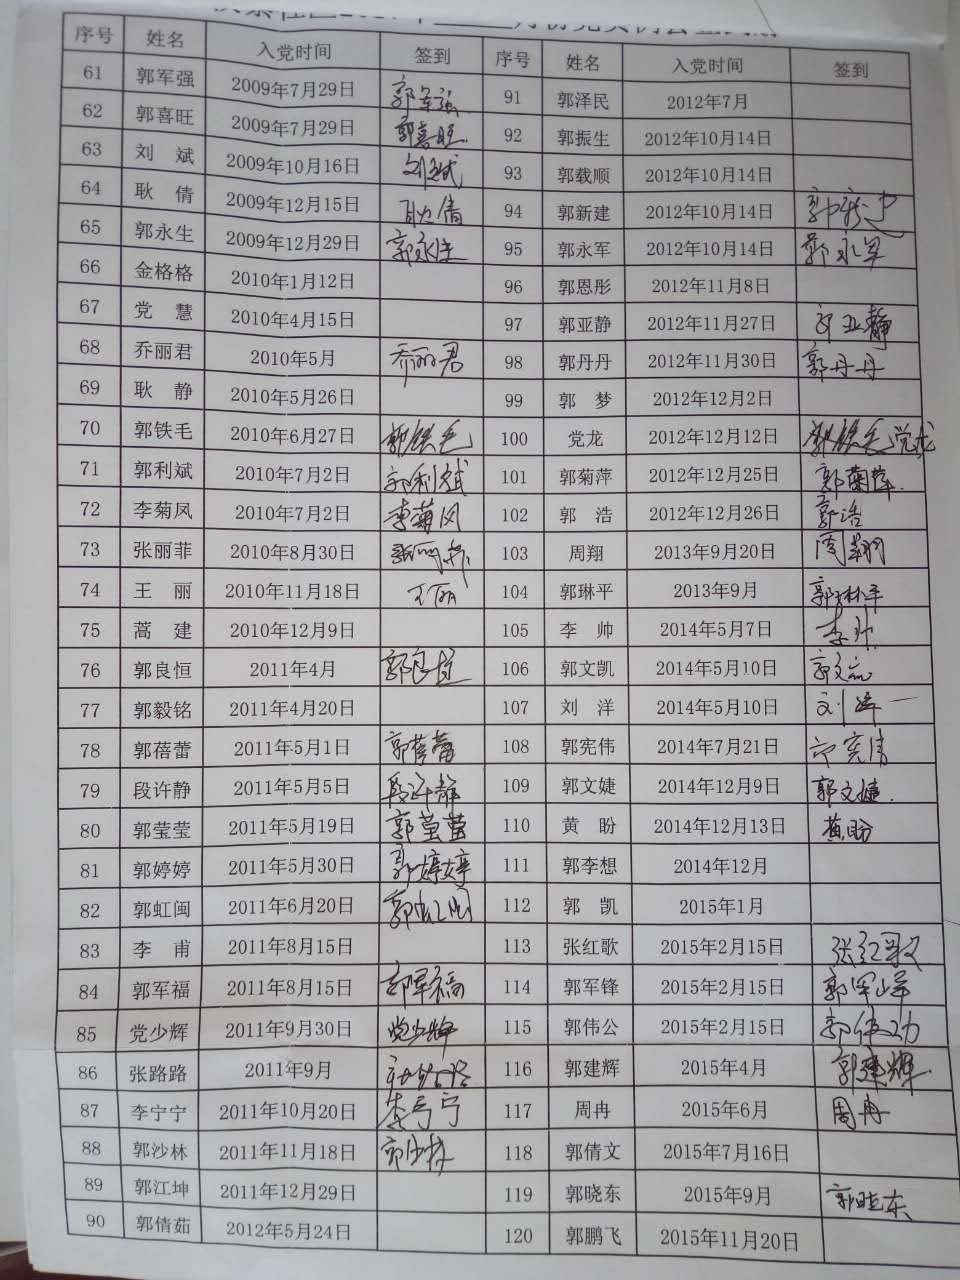 序号 姓名 入党时间 签到 序号 姓名 入党时间 签到
61 郭军强 2009年7月29日 郭军强 91 郭泽民 2012年7月
62 郭喜旺 2009年7月29日 郭喜旺 92 郭振生 2012年10月14日
63 刘 斌 2009年10月16日 刘斌 93 郭载顺 2012年10月14日
64 耿 倩 2009年12月15日 耿倩 94 郭新建 2012年10月14日 郭新建
65 郭永生 2009年12月29日 郭永生 95 郭永军 2012年10月14日 郭永军
66 金格格 2010年1月12日 96 郭恩彤 2012年11月8日
67 党 慧 2010年4月15日 97 郭亚静 2012年11月27日 郭亚静
68 乔丽君 2010年5月 乔丽君 98 郭丹丹 2012年11月30日 郭丹丹
69 耿 静 2010年5月26日 99 郭 梦 2012年12月2日
70 郭铁毛 2010年6月27日 郭铁毛 100 党龙 2012年12月12日 郭铁毛党龙
71 郭利斌 2010年7月2日 郭利斌 101 郭菊萍 2012年12月25日 郭菊萍
72 李菊凤 2010年7月2日 李菊凤 102 郭 浩 2012年12月26日 郭浩
73 张丽菲 2010年8月30日 张丽菲 103 周翔 2013年9月20日 周翔
74 王 丽 2010年11月18日 王丽 104 郭琳平 2013年9月 郭琳平
75 蒿 建 2010年12月9日 105 李 帅 2014年5月7日 李帅
76 郭良恒 2011年4月 郭良恒 106 郭文凯 2014年5月10日 郭文凯
77 郭毅铭 2011年4月20日 107 刘 洋 2014年5月10日 刘洋
78 郭蓓蕾 2011年5月1日 郭蓓蕾 108 郭宪伟 2014年7月21日 郭宪伟
79 段许静 2011年5月5日 段许静 109 郭文婕 2014年12月9日 郭文婕
80 郭莹莹 2011年5月19日 郭莹莹 110 黄 盼 2014年12月13日 黄盼
81 郭婷婷 2011年5月30日 郭婷婷 111 郭李想 2014年12月
82 郭虹闽 2011年6月20日 郭虹闽 112 郭 凯 2015年1月
83 李 甫 2011年8月15日 113 张红歌 2015年2月15日 张红歌
84 郭军福 2011年8月15日 郭军福 114 郭军锋 2015年2月15日 郭军峰
85 党少辉 2011年9月30日 党少辉 115 郭伟公 2015年2月15日 郭伟功
86 张路路 2011年9月 张路路 116 郭建辉 2015年4月 郭建辉
87 李宁宁 2011年10月20日 李宁宁 117 周冉 2015年6月 周冉
88 郭沙林 2011年11月18日 郭沙林 118 郭倩文 2015年7月16日
89 郭江坤 2011年12月29日 119 郭晓东 2015年9月 郭晓东
90 郭倩茹 2012年5月24日 120 郭鹏飞 2015年11月20日